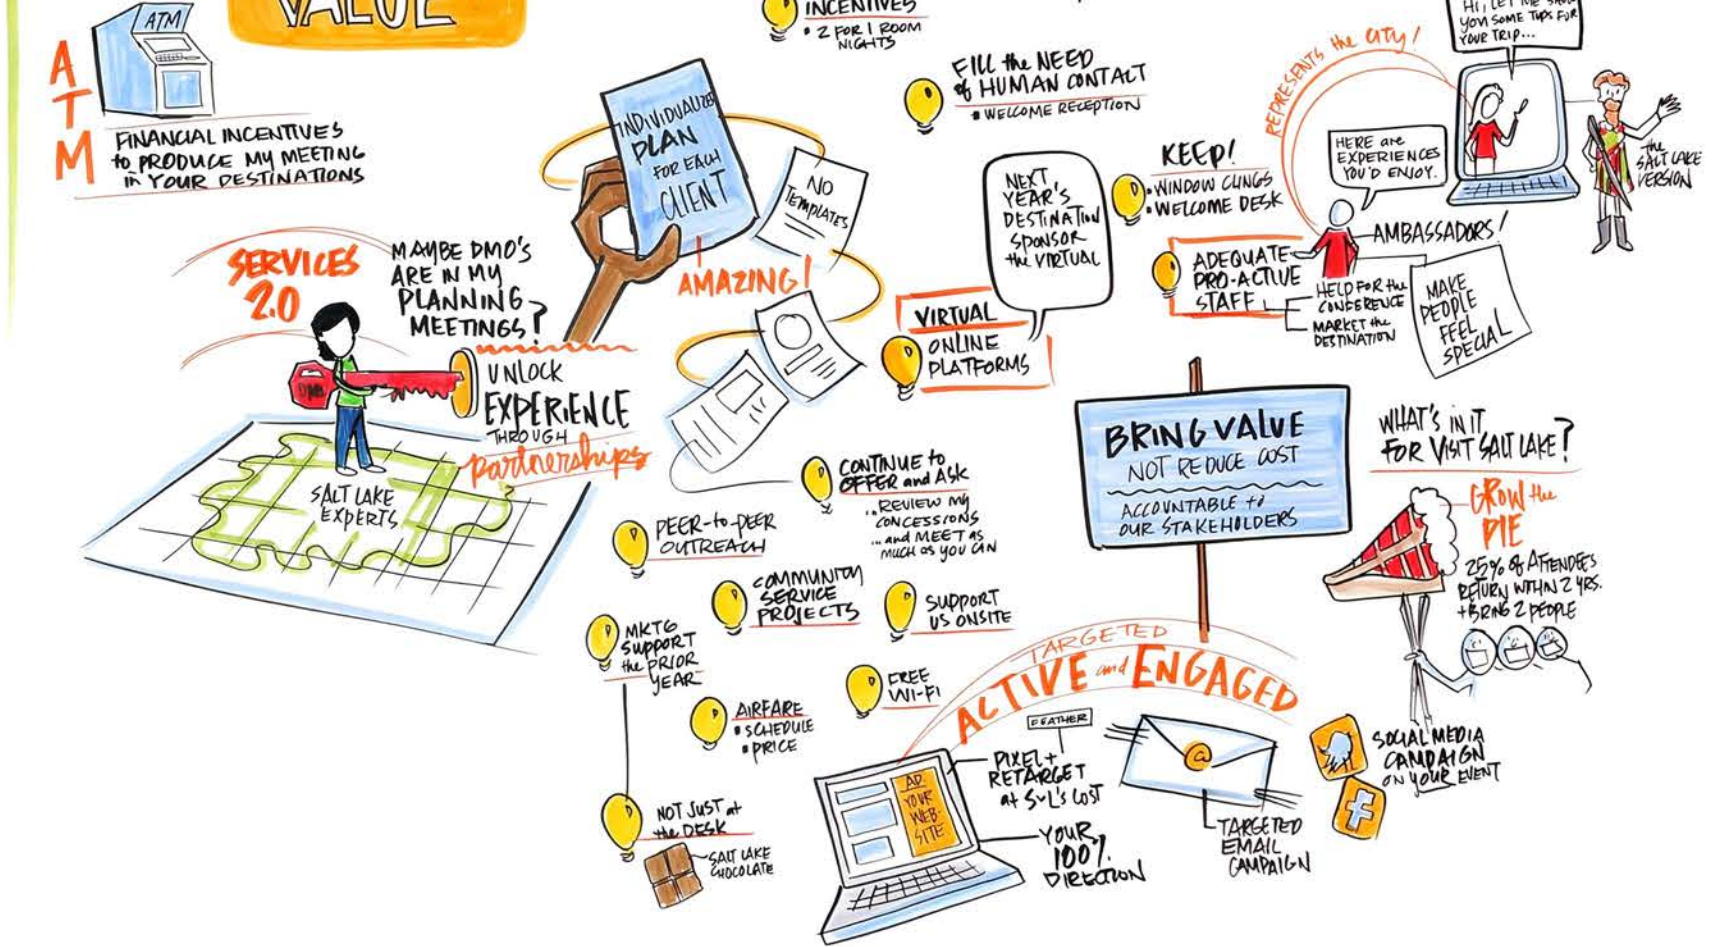 VALUE
ATM
ATM
FINANCIAL INCENTIVES
to PRODUCE MY MEETING
in YOUR DESTINATIONS
INCENTIVES
• 2 FOR 1 ROOM
NIGHTS
FILL the NEED
of HUMAN CONTACT
• WELCOME RECEPTION
INDIVIDUALIZED
PLAN
FOR EACH
CLIENT
NO
TEMPLATES
AMAZING!
SERVICES
2.0
MAYBE DMO'S
ARE IN MY
PLANNING
MEETINGS?
UNLOCK
EXPERIENCE
THROUGH
partnerships
SALT LAKE
EXPERTS
NEXT
YEAR'S
DESTINATION
SPONSOR
the VIRTUAL
VIRTUAL
ONLINE
PLATFORMS
KEEP!
• WINDOW CLINGS
• WELCOME DESK
REPRESENTS the CITY!
HI, LET ME
YOU SOME TIPS FOR
YOUR TRIP...
HERE are
EXPERIENCES
YOU'D ENJOY.
the
SALT LAKE
VERSION
ADEQUATE
PRO-ACTIVE
STAFF
AMBASSADORS!
HELP FOR the
CONFERENCE
MARKET the
DESTINATION
MAKE
PEOPLE
FEEL
SPECIAL
BRING VALUE
NOT REDUCE COST
ACCOUNTABLE to
OUR STAKEHOLDERS
WHAT'S IN IT
FOR VISIT SALT LAKE?
GROW the
PIE
25% of ATTENDEES
RETURN WITHIN 2 YRS.
+ BRING 2 PEOPLE
CONTINUE to
OFFER and ASK
...REVIEW my
CONCESSIONS
...and MEET AS
MUCH as YOU CAN
PEER-to-PEER
OUTREACH
COMMUNITY
SERVICE
PROJECTS
SUPPORT
US ONSITE
MKTG
SUPPORT
the PRIOR
YEAR
FREE
WI-FI
AIRFARE
• SCHEDULE
• PRICE
NOT JUST at
the DESK
SALT LAKE
CHOCOLATE
TARGETED
ACTIVE and ENGAGED
FEATHER
PIXEL +
RETARGET
at SVL'S COST
AD.
YOUR
WEB-
SITE
YOUR
100%
DIRECTION
@
TARGETED
EMAIL
CAMPAIGN
SOCIAL MEDIA
CAMPAIGN
ON YOUR EVENT
f